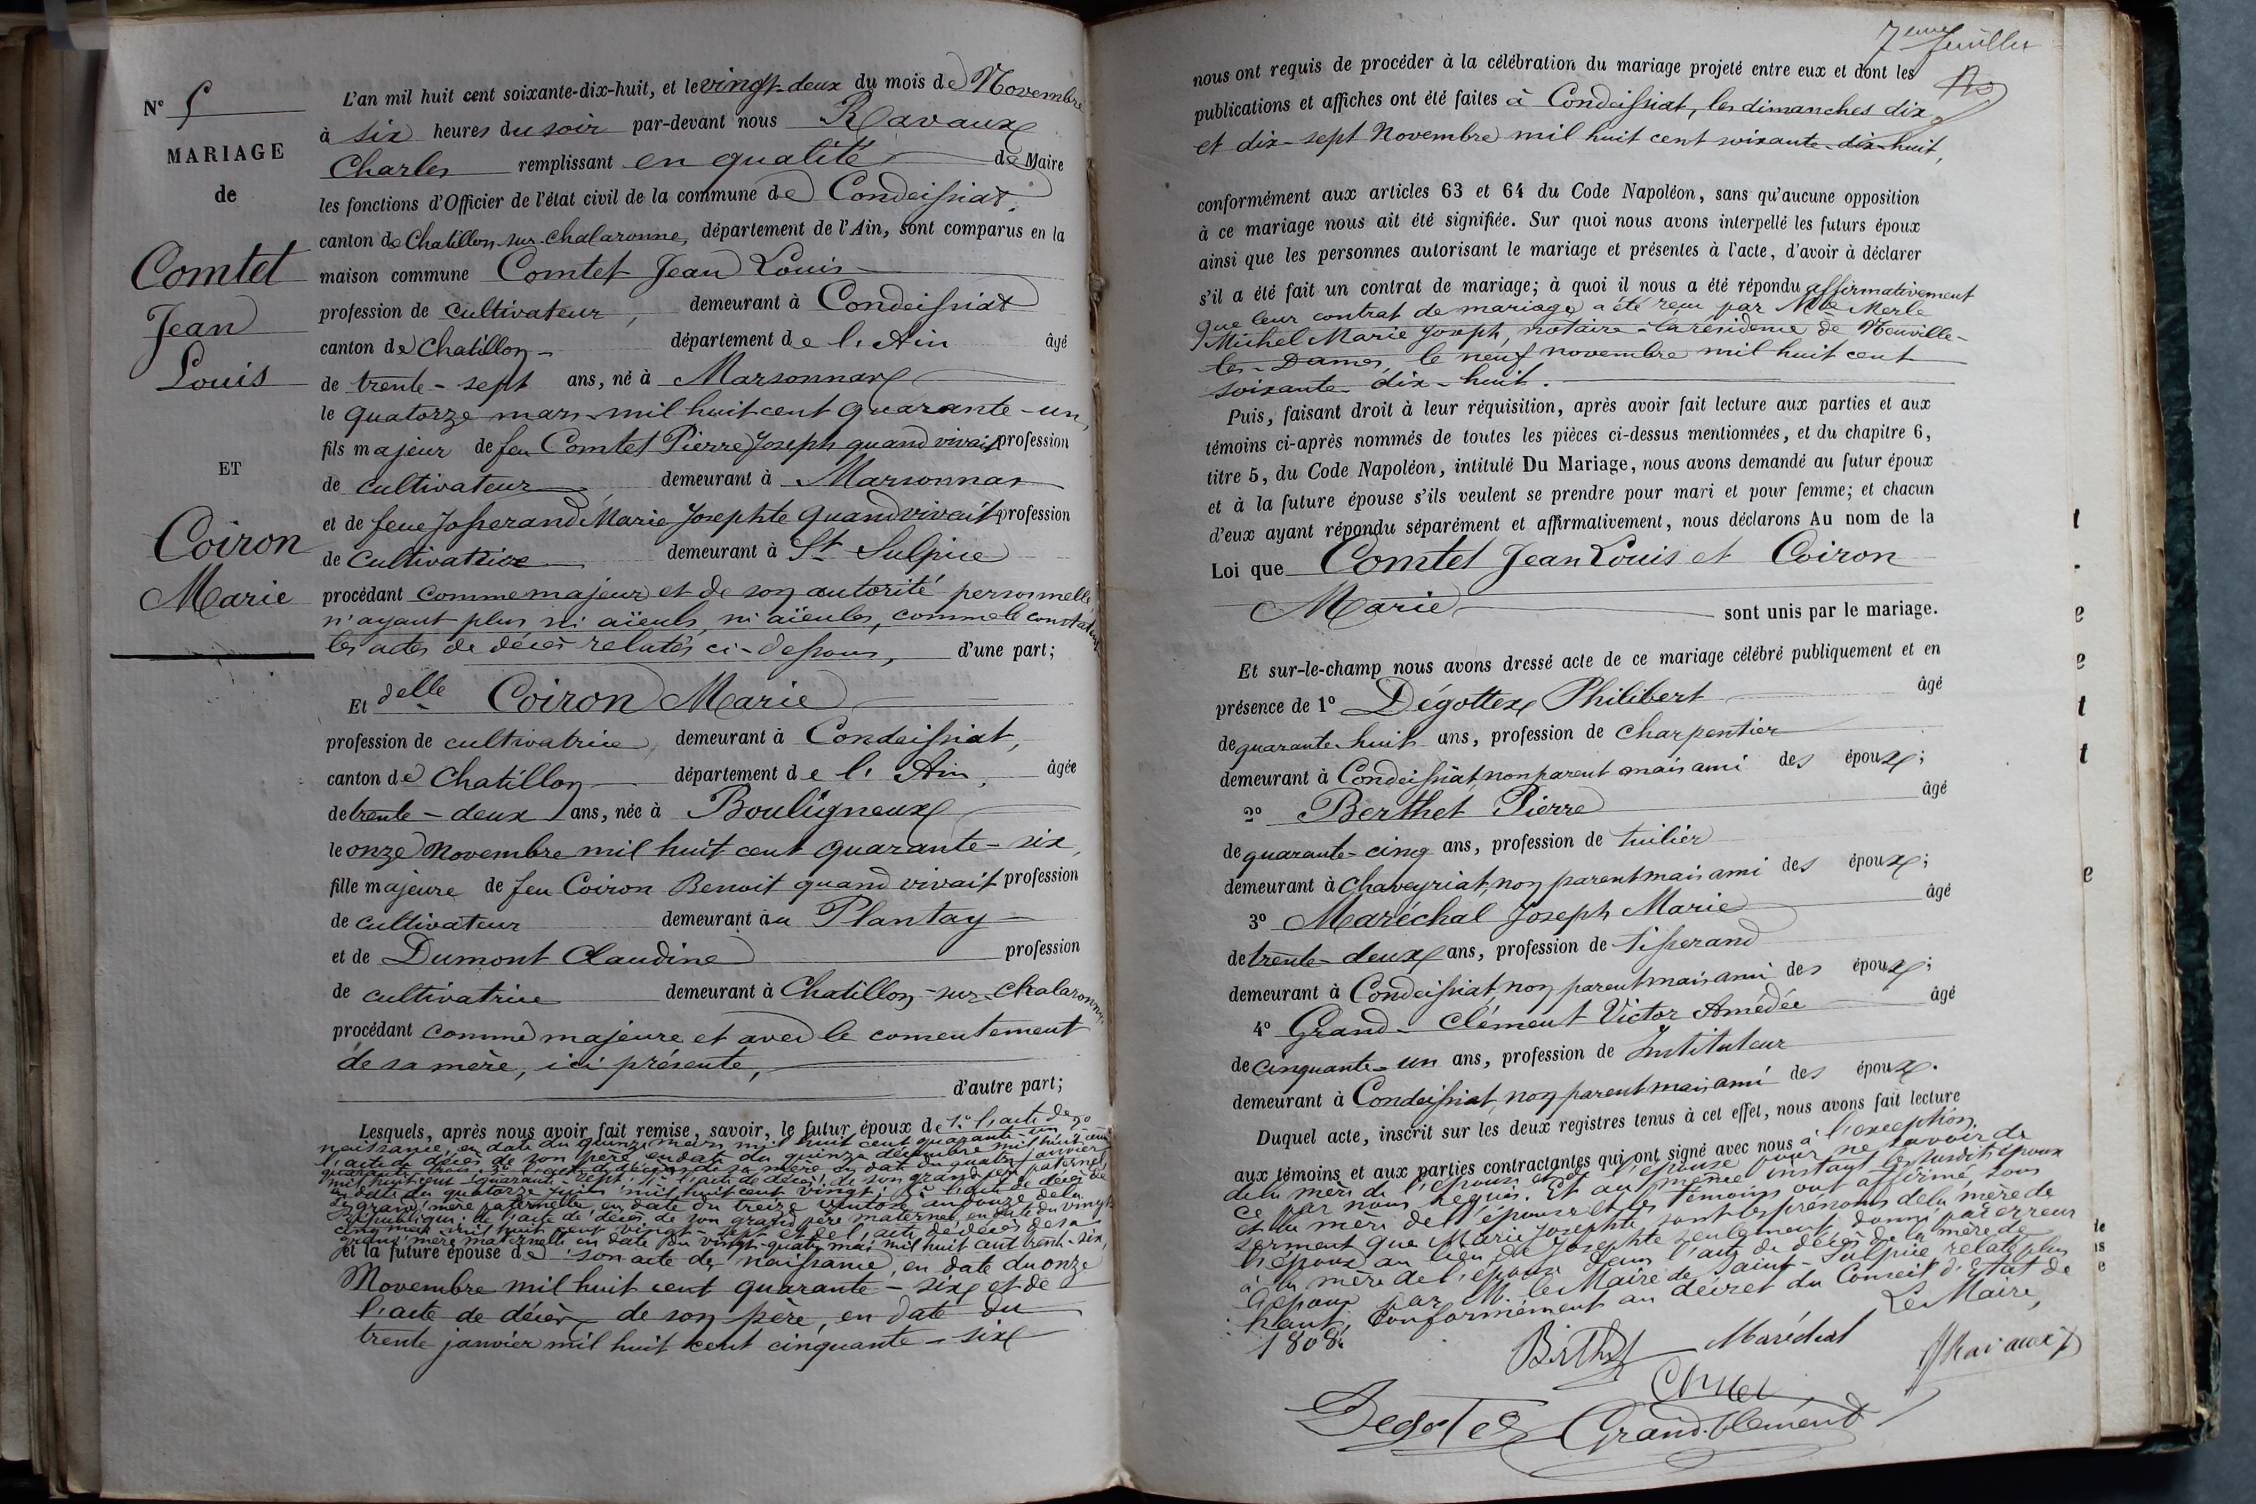 N° 5
MARIAGE
de
Comtet
Jean
Louis
ET
Coiron
Marie
L'an mil huit cent soixante-dix-huit, et le vingt-deux du mois de Novembre
à six heures du soir par-devant nous Ravaux
Charles remplissant en qualité de Maire
les fonctions d'Officier de l'état civil de la commune de Condeissiat,
canton de Chatillon-sur-Chalaronne, département de l'Ain, sont comparus en la
maison commune Comtet Jean Louis
profession de cultivateur, demeurant à Condeissiat
canton de Chatillon- département de l'Ain âgé
de trente-sept ans, né à Marsonnax
le quatorze mars mil huit cent quarante-un,
fils majeur de feu Comtet Pierre Joseph quand vivait profession
de cultivateur, demeurant à Marsonnas
et de feue Josserand Marie Josephte quand vivait profession
de cultivatrice demeurant à St Sulpice
procédant comme majeur et de son autorité personnelle
n'ayant plus ni aïeuls, ni aïeules, comme le constatent
les actes de décès relatés ci-dessous, d'une part;
Et delle Coiron Marie
profession de cultivatrice, demeurant à Condeissiat,
canton de Chatillon département de l'Ain, âgée
de trente-deux ans, née à Bouligneux
le onze Novembre mil huit cent quarante-six,
fille majeure de feu Coiron Benoit quand vivait profession
de cultivateur demeurant au Plantay
et de Dumont Claudine profession
de cultivatrice demeurant à Chatillon-sur-Chalaronne,
procédant comme majeure et avec le consentement
de sa mère, ici présente,
d'autre part;
Lesquels, après nous avoir fait remise, savoir, le futur époux de 1° l'acte de
naissance, en date du quinze mars mil huit cent quarante-un 2°
l'acte de décès de son père en date du quinze décembre mil huit cent
quarante-trois 3° l'acte de décès de sa mère en date du quatre janvier
mil huit cent quarante-sept; 4° l'acte de décès de son grand père paternel,
en date du quatorze juin mil huit cent vingt; 5° l'acte de décès de
sa grand'mère paternelle, en date du treize ventôse an douze de la
République; de l'acte de décès de son grand père maternel, en date du vingt
mil huit cent vingt-sept et de l'acte de décès de sa
grand'mère maternelle en date du vingt-quatre mai mil huit cent trente-six,
et la future épouse de son acte de naissance, en date du onze
Novembre mil huit cent quarante-six et de
l'acte de décès de son père, en date du
trente janvier mil huit cent cinquante-six
7eme feuillet
nous ont requis de procéder à la célébration du mariage projeté entre eux et dont les
publications et affiches ont été faites à Condeissiat, les dimanches dix
et dix-sept Novembre mil huit cent soixante-dix-huit,
conformément aux articles 63 et 64 du Code Napoléon, sans qu'aucune opposition
à ce mariage nous ait été signifiée. Sur quoi nous avons interpellé les futurs époux
ainsi que les personnes autorisant le mariage et présentes à l'acte, d'avoir à déclarer
s'il a été fait un contrat de mariage; à quoi il nous a été répondu affirmativement
que leur contrat de mariage a été reçu par Me Merle
Michel Marie Joseph, notaire à la résidence de Neuville-
les-Dames, le neuf novembre mil huit cent
soixante-dix-huit.
Puis, faisant droit à leur réquisition, après avoir fait lecture aux parties et aux
témoins ci-après nommés de toutes les pièces ci-dessus mentionnées, et du chapitre 6,
titre 5, du Code Napoléon, intitulé Du Mariage, nous avons demandé au futur époux
et à la future épouse s'ils veulent se prendre pour mari et pour femme; et chacun
d'eux ayant répondu séparément et affirmativement, nous déclarons Au nom de la
Loi que Comtet Jean Louis et Coiron
Marie sont unis par le mariage.
Et sur-le-champ nous avons dressé acte de ce mariage célébré publiquement et en
présence de 1° Dégottex Philibert âgé
de quarante-huit ans, profession de charpentier
demeurant à Condeissiat, non parent mais ami des époux;
2° Berthet Pierre âgé
de quarante-cinq ans, profession de tuilier
demeurant à Chaveyriat, non parent mais ami des époux;
3° Maréchal Joseph Marie âgé
de trente-deux ans, profession de tisserand
demeurant à Condeissiat, non parent mais ami des époux;
4° Grand-Clément Victor Amédée âgé
de cinquante-un ans, profession de Instituteur
demeurant à Condeissiat, non parent mais ami des époux.
Duquel acte, inscrit sur les deux registres tenus à cet effet, nous avons fait lecture
aux témoins et aux parties contractantes qui ont signé avec nous à l'exception
de la mère de l'épouse et de l'épouse pour ne savoir de
ce par nous requis. Et au même instant les susdits époux
et la mère de l'épouse et les témoins ont affirmé, sous
serment que Marie Josephte sont les prénoms de la mère de
l'époux au lieu de Josephte seulement donné par erreur
à la mère de l'époux dans l'acte de décès de la mère de
l'époux par M. le Maire de Saint-Sulpice relaté plus
haut, Conformément au décret du Conseil d'Etat de
1808.
Le Maire,
Berthet Maréchal Ravaux
Degottex Grand-Clément